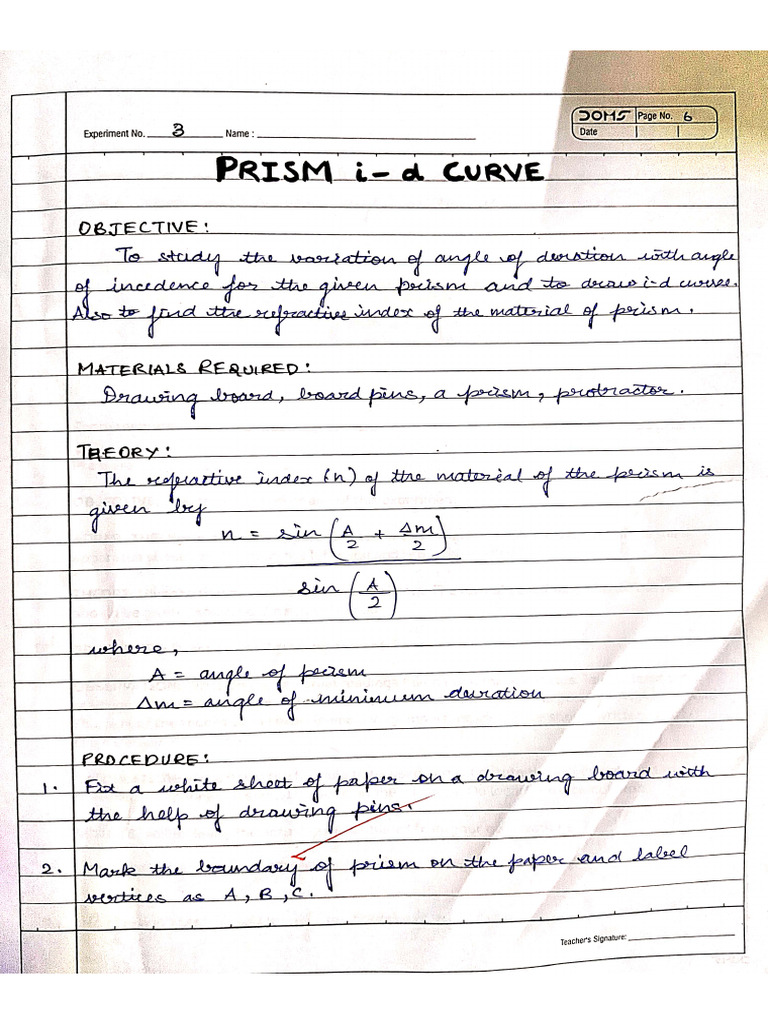 DOMS Page No. 6
Experiment No. 3 Name :
Date
PRISM i-d CURVE
OBJECTIVE:
To study the variation of angle of deviation with angle
of incedence for the given prism and to draw i-d curves.
Also to find the refractive index of the material of prism.
MATERIALS REQUIRED:
Drawing board, board pins, a prism, protractor.
THEORY:
The refractive index (n) of the material of the prism is
given by
n = sin (A/2 + Δm/2)
sin (A/2)
where,
A = angle of prism
Δm = angle of minimum duration
PROCEDURE:
1. Fix a white sheet of paper on a drawing board with
the help of drawing pins.
2. Mark the boundary of prism on the paper and label
vertices as A, B, C.
Teacher's Signature: